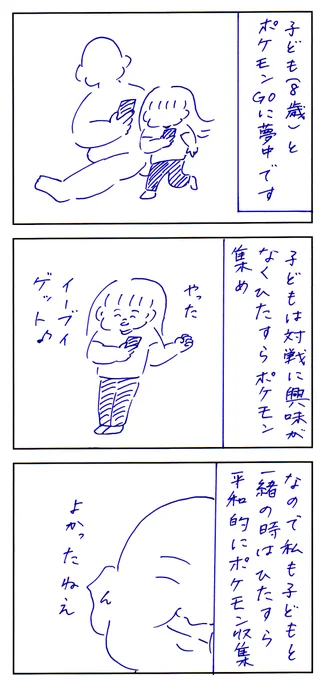 子ども(8歳)と
ポケモンGOに夢中です
子どもは対戦に興味が
なくひたすらポケモン
集め
やった
イーブイ
ゲット♪
なので私も子どもと
一緒の時はひたすら
平和的にポケモン収集
よかったねえ